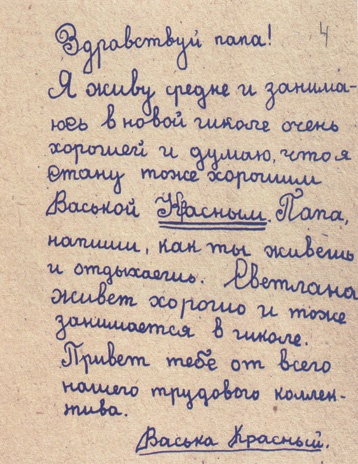 4
Здравствуй папа!
Я живу средне и занима-
юсь в новой школе очень
хорошей и думаю, что я
стану тоже хорошим
Васькой Красным. Папа,
напиши, как ты живешь
и отдыхаешь. Светлана
живет хорошо и тоже
занимается в школе.
Привет тебе от всего
нашего трудового коллек-
тива.
Васька Красный.